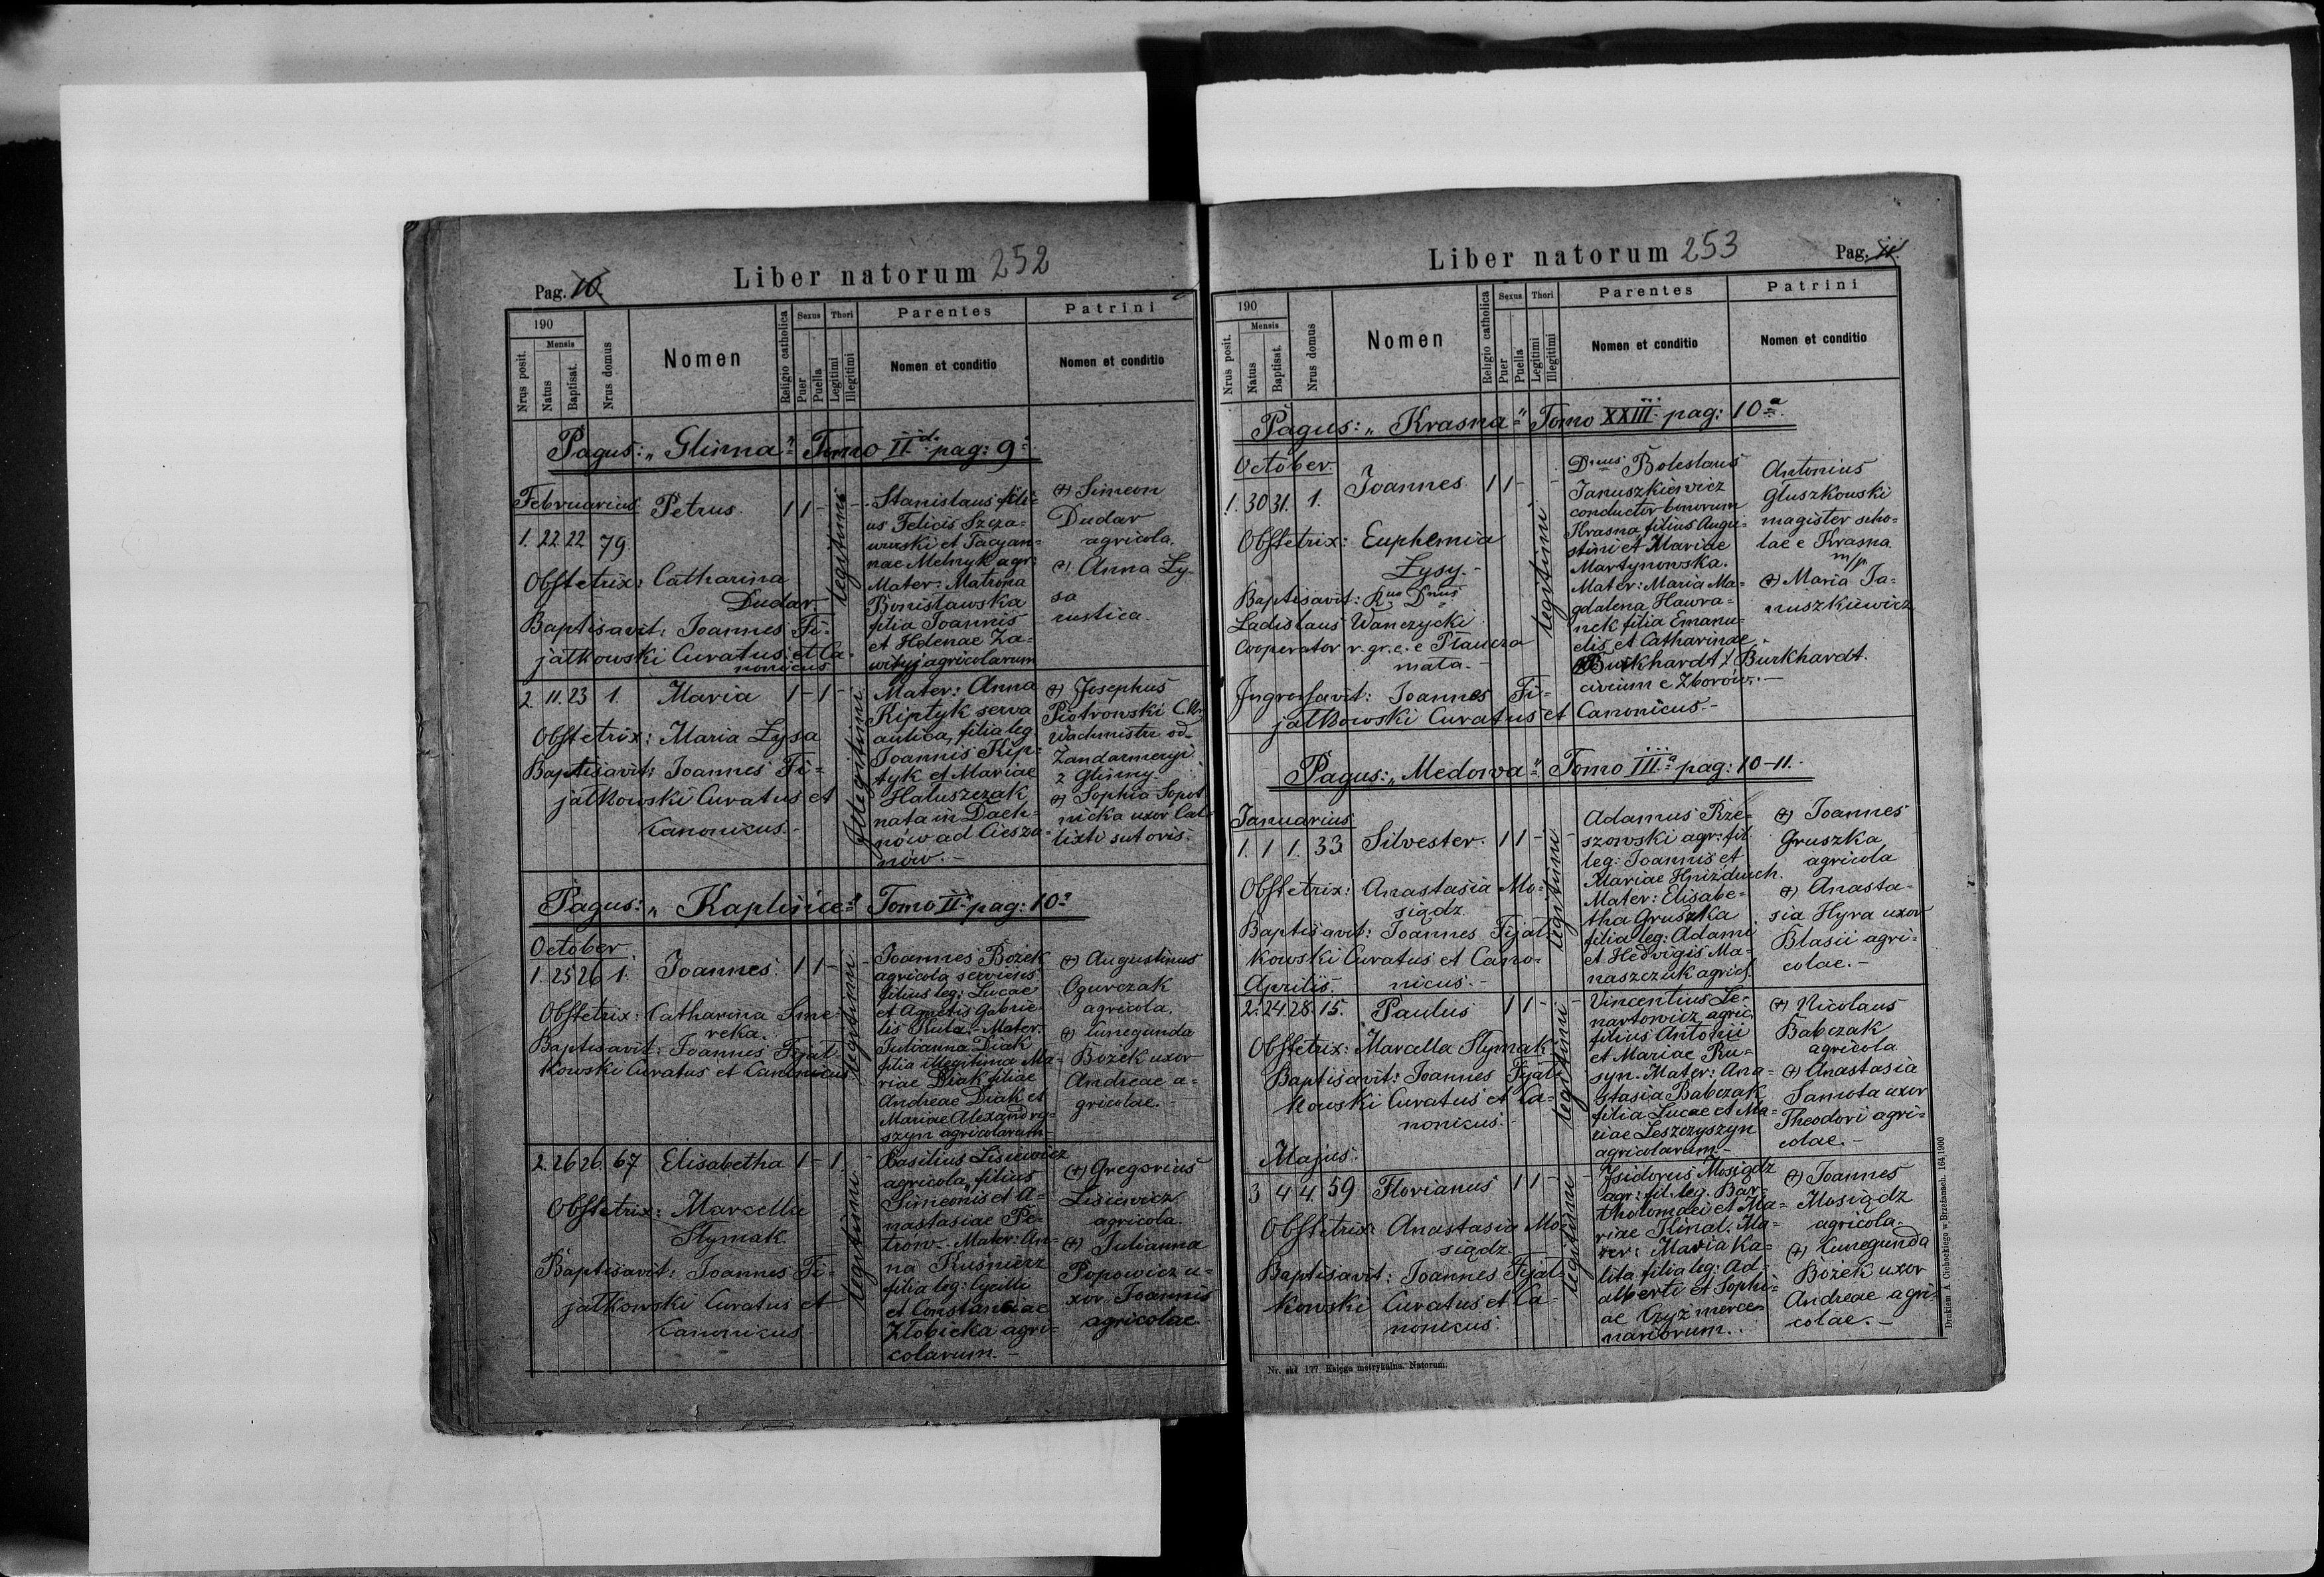 Pag. 10.
Liber natorum 252
190
Nrus posit.
Mensis
Natus
Baptisat.
Nrus domus
Nomen
Religio catholica
Sexus
Puer
Puella
Thori
Legitimi
Illegitimi
Parentes
Nomen et conditio
Patrini
Nomen et conditio
Pagus: „Glinna" Tomo II d. pag: 9.
Februarius
1. 22 22 79. Petrus. 1 1 - -
legitimi
Obstetrix: Catharina
Dudar.
Baptisavit: Joannes Fi=
jałkowski Curatus et Ca=
nonicus
Stanislaus fili=
us Felicis Szcza=
wurski et Tacyan=
nae Melnyk agr:
Mater: Matrona
Bonisławska
filia Joannis
et Helenae Za=
wityj agricolarum
(+) Simeon
Dudar
agricola.
(+) Anna Ły=
sa
rustica.
2. 11. 23 1. Maria 1 - 1 -
Illegitimi
Obstetrix: Maria Łysa
Baptisavit: Joannes Fi=
jałkowski Curatus et
Canonicus.-
Mater: Anna
Kiptyk serva
aulica, filia leg
Joannis Kip=
tyk et Mariae
Hałuszczak
nata in Dach=
nów ad Ciesza=
nów.-
(+) Josephus
Piotrowski
Wachmistrz od
Żandarmeryi
z Glinny.
(+) Sophia Sopot
nicka uxor Cal=
lixti sutoris.
Pagus: „Kaplińce" Tomo II pag: 10.
October.
1. 25 26 1. Joannes. 1 1 - -
legitimi
Obstetrix: Catharina Sme=
reka.
Baptisavit: Joannes Fijał=
kowski Curatus et Canonicus
Joannes Bożek
agricola serviens
filius leg: Lucae
et Agnetis Gabrie=
lis Kuta.- Mater:
Julianna Diak
filia illegitima Ma=
riae Diak filiae
Andreae Diak et
Mariae Alexandry=
szyn agricolarum-
(+) Augustinus
Ogurczak
agricola.
(+) Cunegunda
Bożek uxor
Andreae a=
gricolae.-
2. 26 26. 67 Elisabetha 1 - 1. -
legitimi
Obstetrix: Marcella
Stymak.
Baptisavit: Joannes Fi=
jałkowski Curatus et
Canonicus
Basilius Lisiewicz
agricola, filius
Simeonis et A=
nastasiae Pe=
trów.- Mater: An=
na Kuśnierz
filia leg: Cyrilli
et Constanciae
Złobicka agri=
colarum.-
(+) Gregorius
Lisiewicz
agricola.
(+) Julianna
Popowicz u=
xor Joannis
agricolae
Liber natorum 253
Pag. 11.
190
Nrus posit.
Mensis
Natus
Baptisat.
Nrus domus
Nomen
Religio catholica
Sexus
Puer
Puella
Thori
Legitimi
Illegitimi
Parentes
Nomen et conditio
Patrini
Nomen et conditio
Pagus: „Krasna" Tomo XXIII. pag: 10 a.
October.
1. 30 31. 1. Joannes. 1 1 - -
legitimi
Obstetrix: Euphemia
Łysy.-
Baptisavit: Rus Dnus
Ladislaus Wanczycki
Cooperator r. gr. c. e Płaucza
mała.-
Ingrossavit: Joannes Fi=
jałkowski Curatus et Canonicus.-
Dnus Boleslaus
Januszkiewicz
conductor bonorum
Krasna, filius Augu=
stini et Mariae
Martynowska.
Mater: Maria Ma=
gdalena Hawra=
nek filia Emanu=
elis et Catharinae
Burkhardt / Burkhardt.
civium e Zborów.-
Antonius
Głuszkowski
magister scho=
lae e Krasna
m/p
(+) Maria Ja=
nuszkiewicz
Pagus: „Medowa" Tomo III a pag: 10-11.
Januarius
1. 1 1. 33 Silvester. 1 1 - -
legitimi
Obstetrix: Anastasia Mo=
siądz.
Baptisavit: Joannes Fijał=
kowski Curatus et Cano=
nicus.-
Adamus Rze=
szowski agr: fil.
leg: Joannis et
Mariae Hnizduich.
Mater: Elisabe=
tha Gruszka
filia leg: Adami
et Hedvigis Ma=
naszczuk agricol.
(+) Joannes
Gruszka
agricola
(+) Anasta=
sia Hyra uxor
Blasii agri=
colae.-
Aprilis.
2. 24. 28. 15. Paulus 1 1 - -
legitimi
Obstetrix: Marcella Stymak
Baptisavit: Joannes Fijał=
kowski Curatus et Ca=
nonicus.-
Vincentius Le=
nartowicz agric.
filius Antonii
et Mariae Ru=
syn.- Mater: Ana=
stasia Babczak
filia Lucae et Ma=
riae Leszczyszyn
agricolarum.-
(+) Nicolaus
Babczak
agricola
(+) Anastasia
Samota uxor
Theodori agri=
colae.-
Majus.
3 4 4. 59 Florianus 1 1 - -
legitimi
Obstetrix: Anastasia Mo=
siądz
Baptisavit: Joannes Fijał=
kowski Curatus et Ca=
nonicus.
Isidorus Mosiądz
agr: fil. leg. Bar=
tholomaei et Ma=
riae Ma=
ter: Maria Ka=
lita filia leg: Ad=
alberti et Sophi=
ae Czyż merce=
nariorum.
(+) Joannes
Mosiądz
agricola.
(+) Cunegunda
Bożek uxor
Andreae agri=
colae.-
Nr. skł 177. Księga metrykalna. Natorum.
Drukiem A. Cichockiego w Brzeżanach. 164.1900